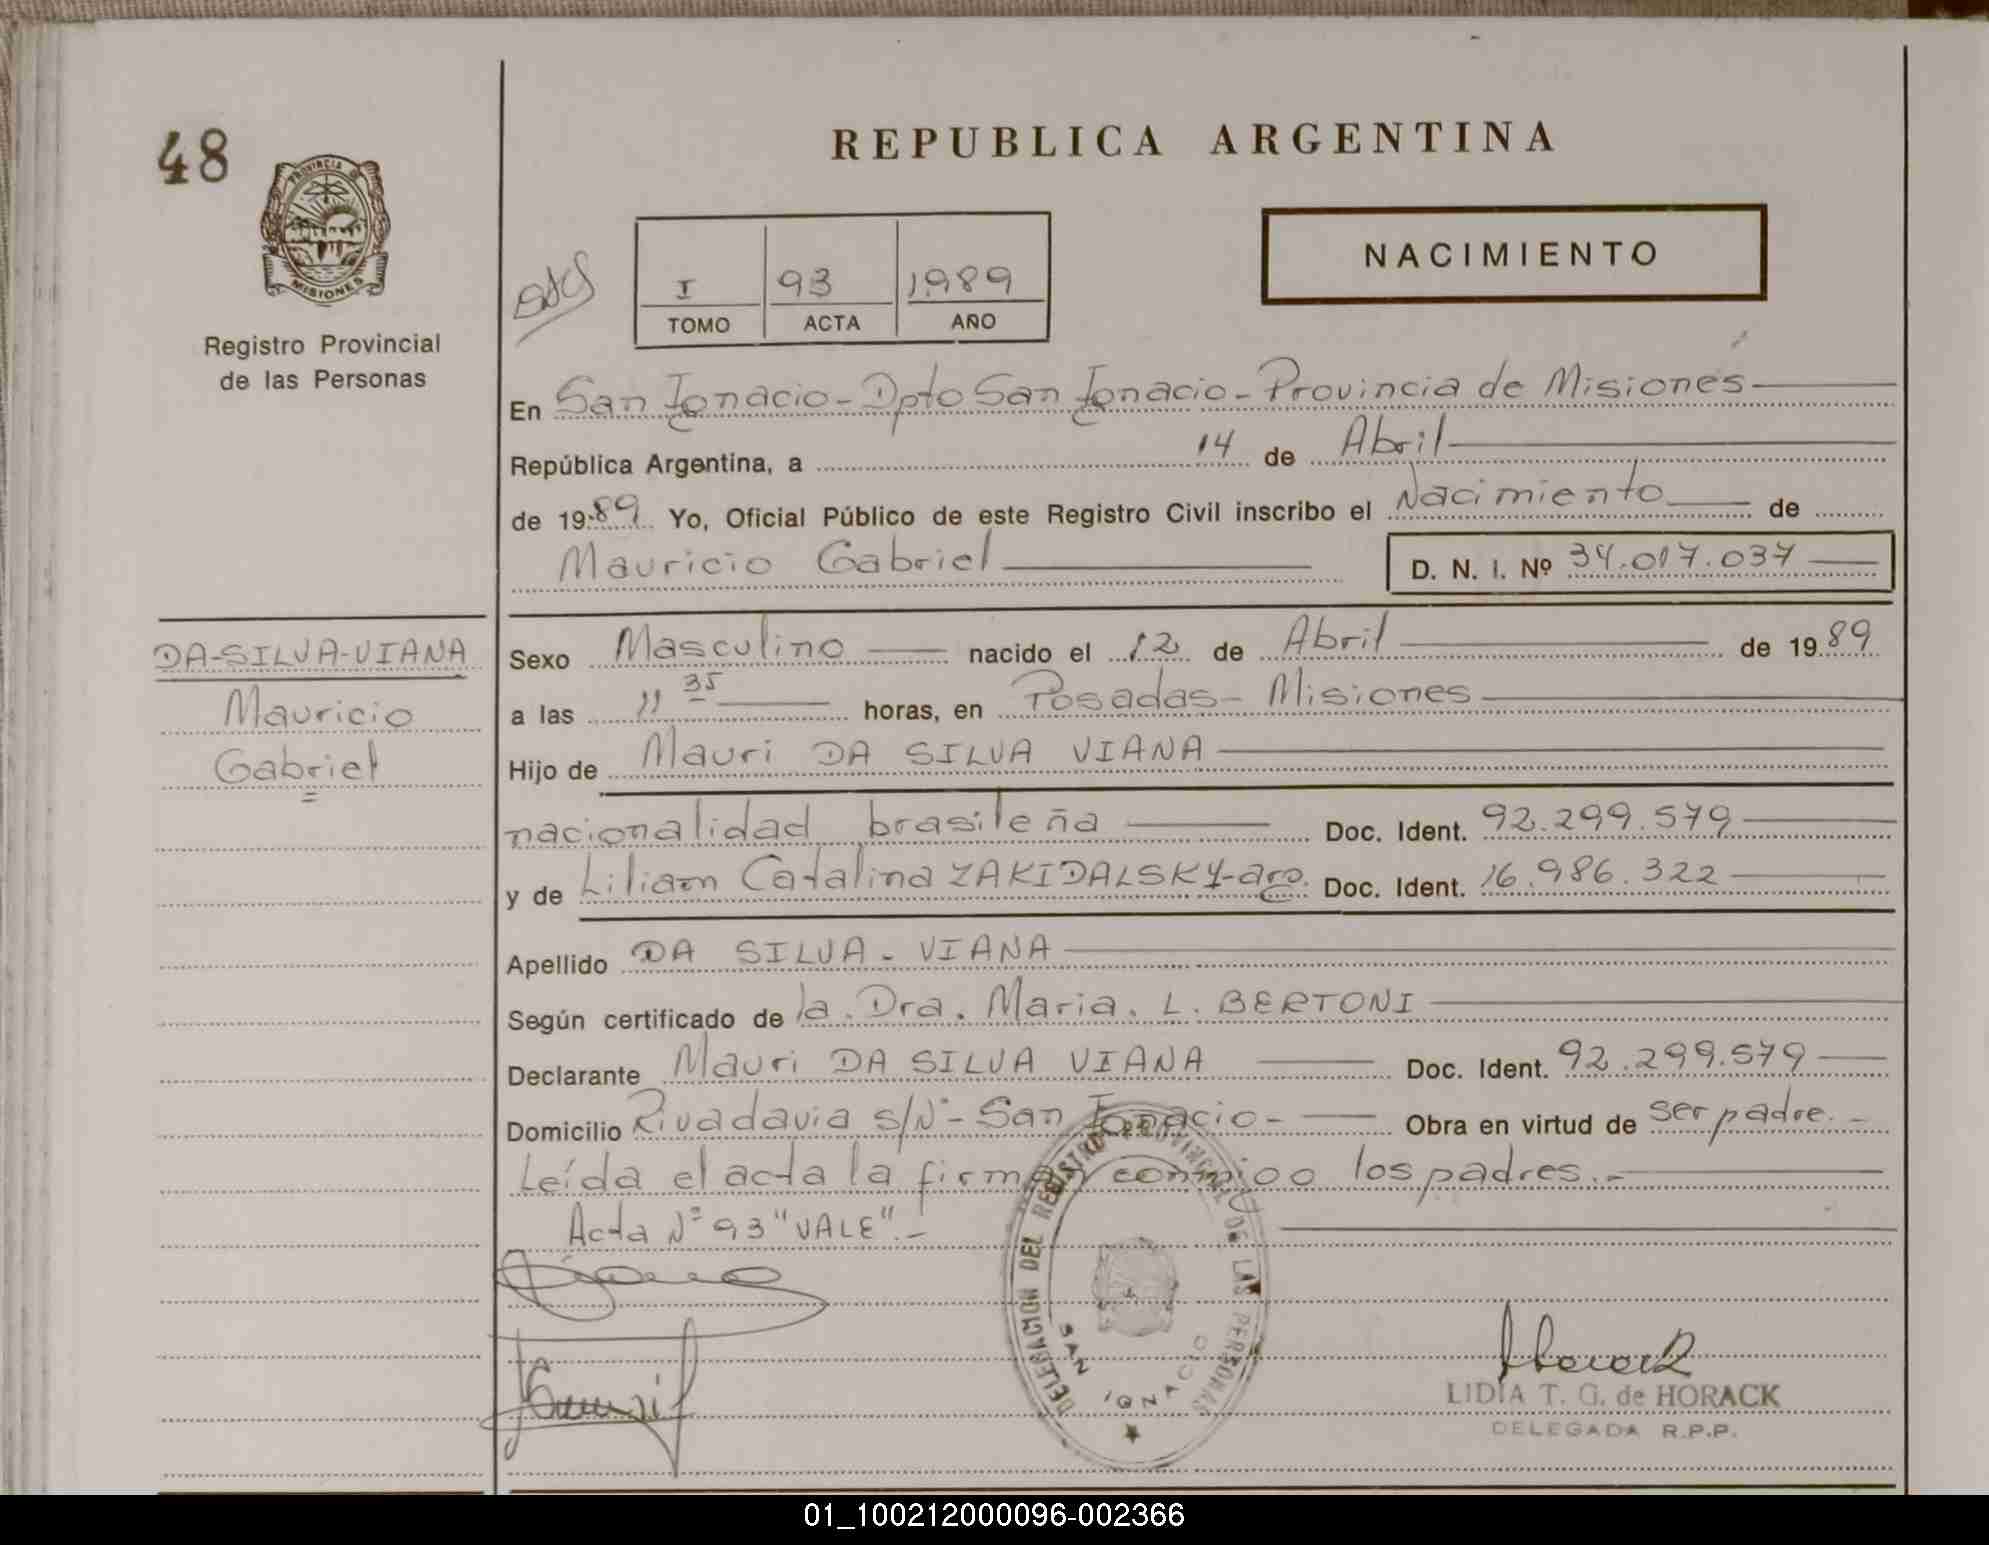 48
REPUBLICA ARGENTINA
PROVINCIA D
MISIONES
Registro Provincial
de las Personas
NACIMIENTO
I 93 1989
TOMO ACTA AÑO
En San Ignacio - Dpto San Ignacio - Provincia de Misiones
República Argentina, a 14 de Abril
de 1989 Yo, Oficial Público de este Registro Civil inscribo el Nacimiento de
Mauricio Gabriel D. N. I. Nº 34.017.037
DA-SILVA-VIANA
Mauricio
Gabriel
Sexo Masculino nacido el 12 de Abril de 1989
a las 11 35 horas, en Posadas - Misiones
Hijo de Mauri DA SILVA VIANA
nacionalidad brasileña Doc. Ident. 92.299.579
y de Liliam Catalina ZAKIDALSKY-arg. Doc. Ident. 16.986.322
Apellido DA SILVA - VIANA
Según certificado de la. Dra. Maria. L. BERTONI
Declarante Mauri DA SILVA VIANA Doc. Ident. 92.299.579
Domicilio Rivadavia s/Nº - San Ignacio - Obra en virtud de ser padre. -
Leída el acta la firman conmigo los padres. -
Acta Nº 93 "VALE". -
DELEGACION DEL REGISTRO PROVINCIAL DE LAS PERSONAS
SAN IGNACIO
Horack
LIDIA T. G. de HORACK
DELEGADA R.P.P.
01_100212000096-002366